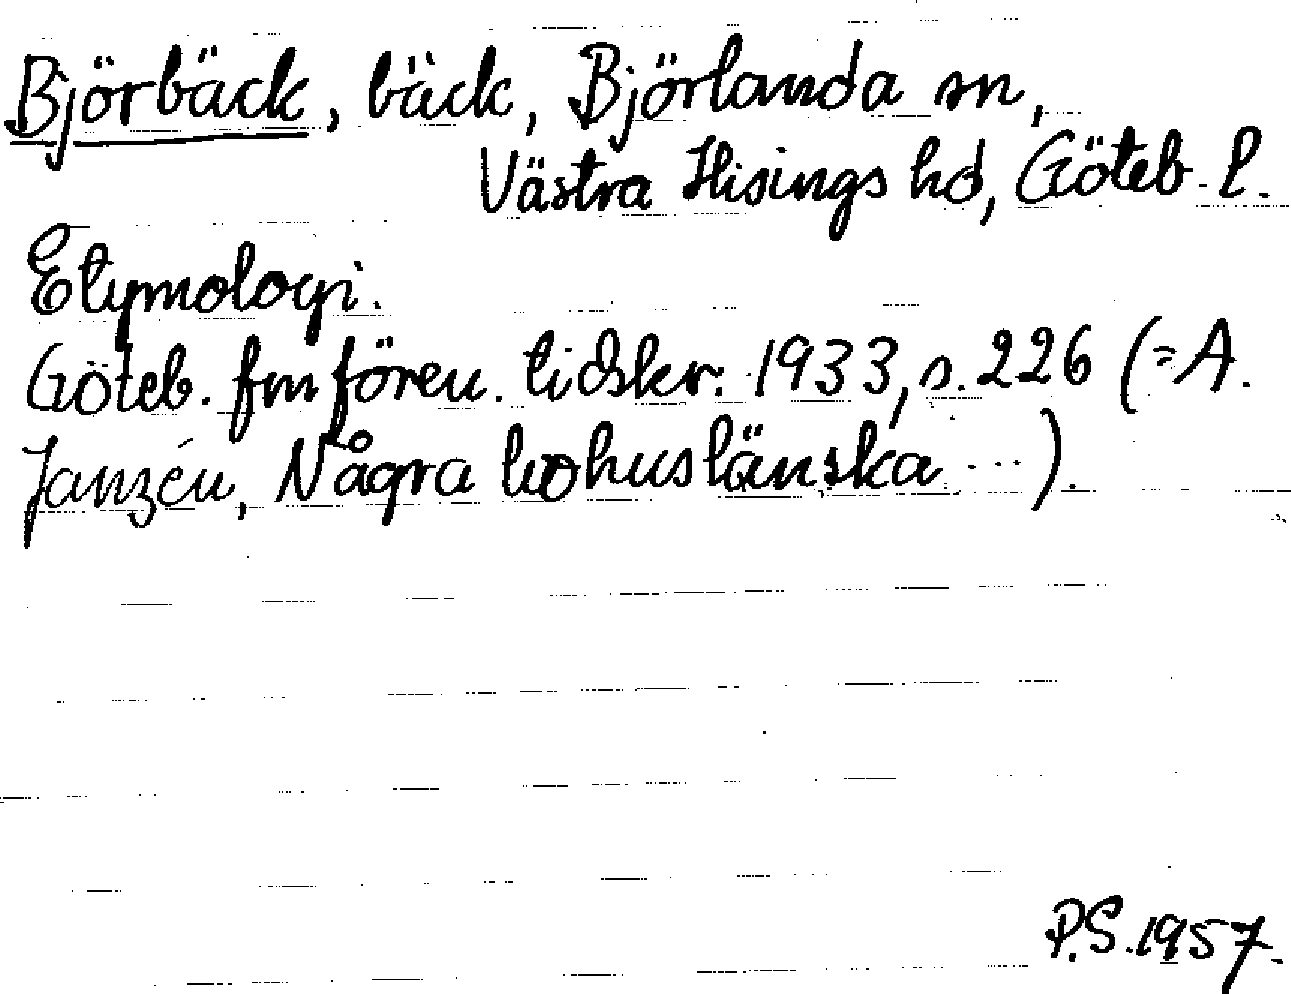 Björbäck, bäck, Björlanda sn,
Västra Hisings hd, Göteb. l.
Etymologi.
Göteb. fmfören. tidskr. 1933, s. 226 (= A.
Janzén, Några bohuslänska ...).
P.S. 1957.